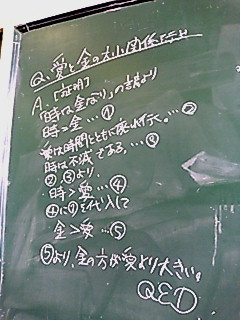 Q. 愛と金の大小関係を示せ
A. [証明]
「時は金なり」の言葉より
時=金…①
愛は時間とともに 行く。…②
時は不滅である。…③
②③より、
時>愛…④
④に①を代入して
金>愛…⑤
⑤より、金の方が愛より大きい。
QED